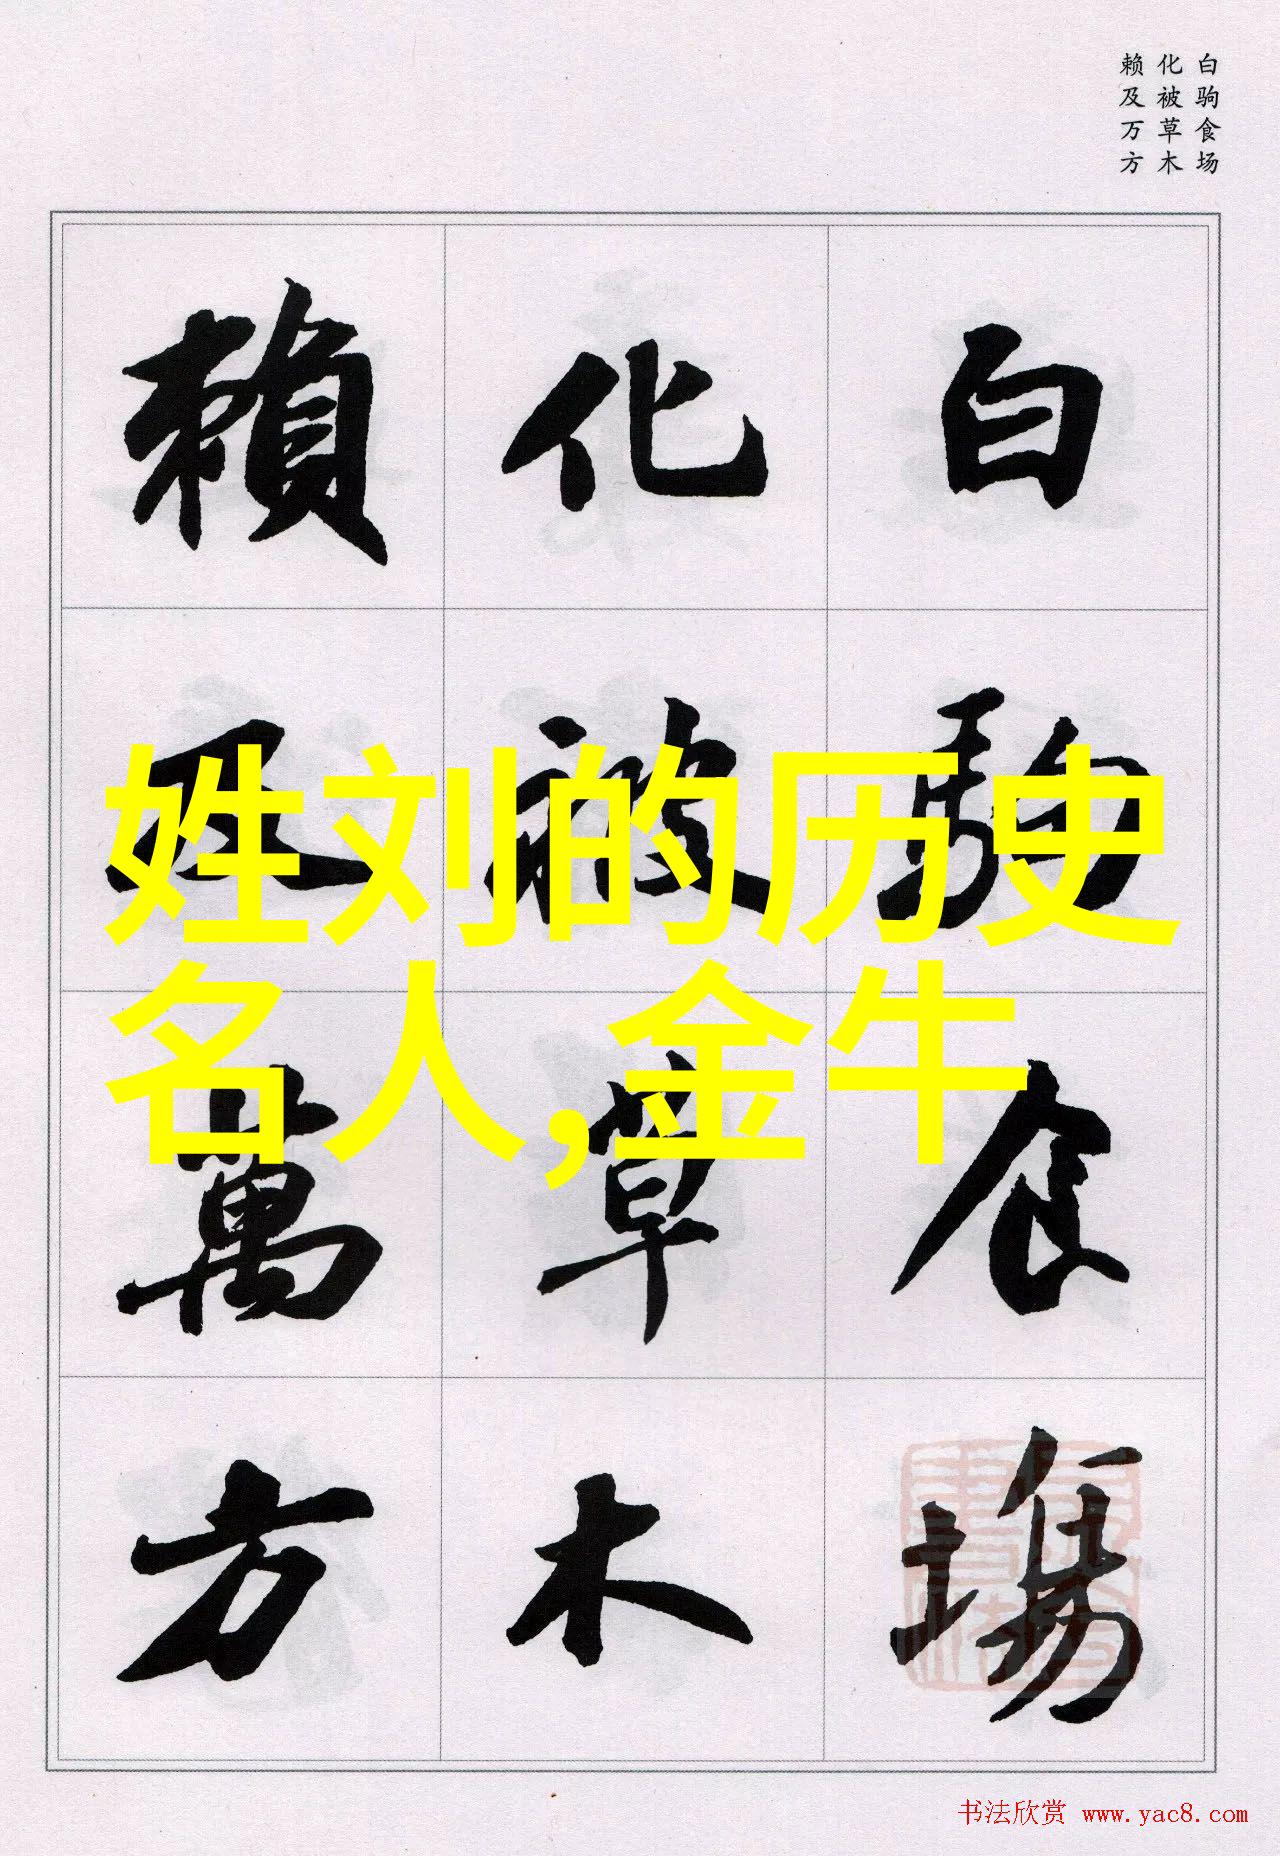 白驹食场
化被草木
赖及万方
白駒食場
化被草木
賴及萬方
姓刘的历史
名人,金牛
书法欣赏 www.yac8.com